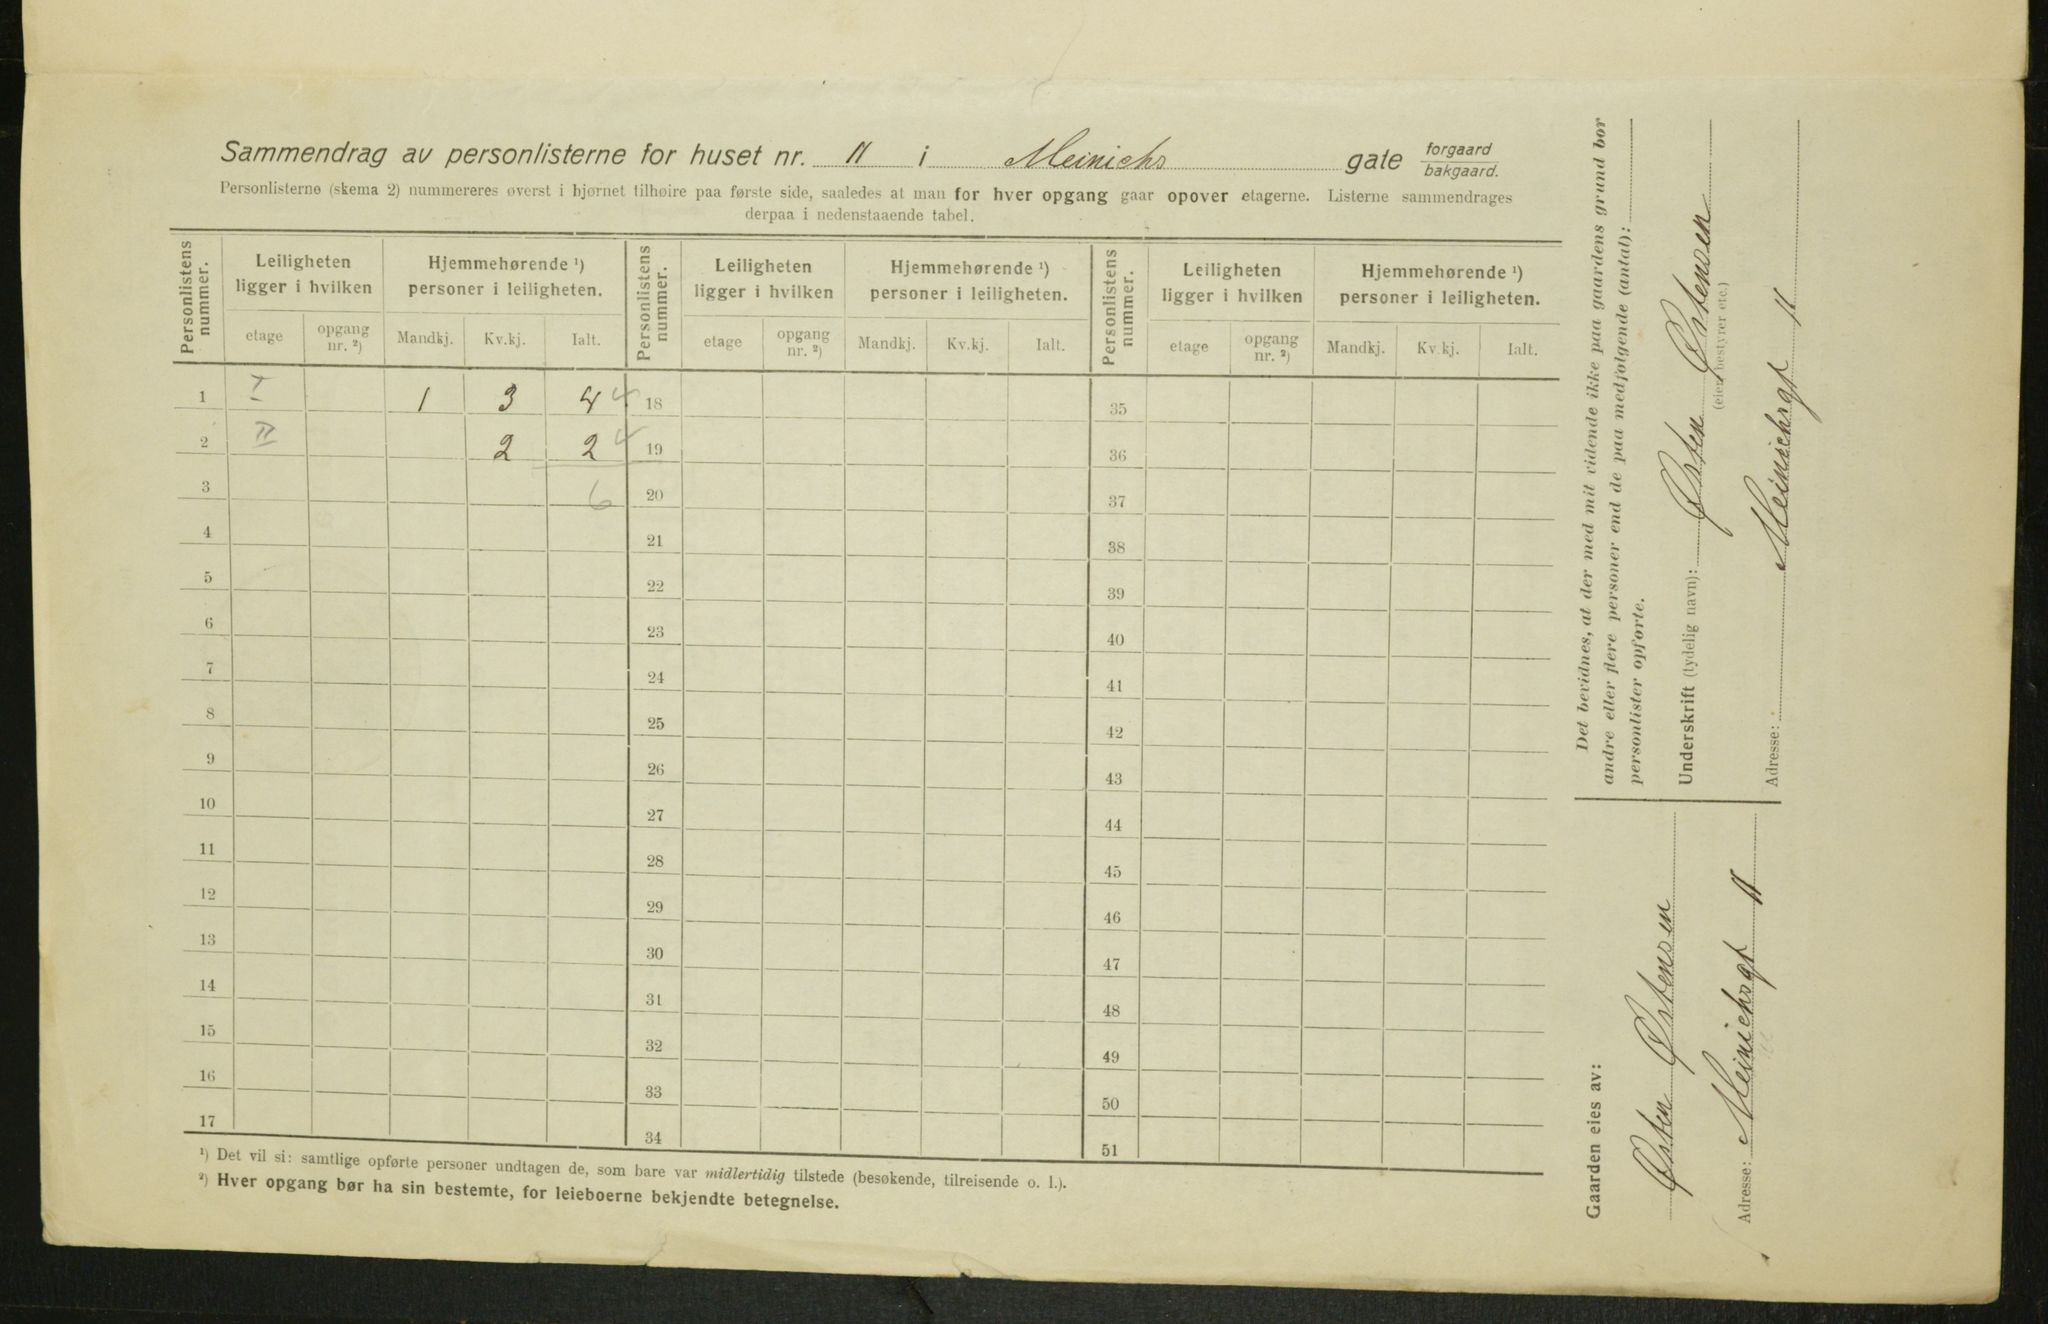 Sammendrag av personlisterne for huset nr. 11 i Meinichs gate forgaard / bakgaard.
Personlisterne (skema 2) nummereres øverst i hjørnet tilhøire paa første side, saaledes at man for hver opgang gaar opover etagerne. Listerne sammendrages
derpaa i nedenstaaende tabel.
Personlistens nummer. | Leiligheten ligger i hvilken | Hjemmehørende ¹) personer i leiligheten. | Personlistens nummer. | Leiligheten ligger i hvilken | Hjemmehørende ¹) personer i leiligheten. | Personlistens nummer. | Leiligheten ligger i hvilken | Hjemmehørende ¹) personer i leiligheten.
etage | opgang nr. ²) | Mandkj. | Kv.kj. | Ialt. | etage | opgang nr. ²) | Mandkj. | Kv.kj. | Ialt. | etage | opgang nr. ²) | Mandkj. | Kv.kj. | Ialt.
1 I 1 3 4 4 18 35
2 II 2 2 4 19 36
3 6 20 37
4 21 38
5 22 39
6 23 40
7 24 41
8 25 42
9 26 43
10 27 44
11 28 45
12 29 46
13 30 47
14 31 48
15 32 49
16 33 50
17 34 51
¹) Det vil si: samtlige opførte personer undtagen de, som bare var midlertidig tilstede (besøkende, tilreisende o. l.).
²) Hver opgang bør ha sin bestemte, for leieboerne bekjendte betegnelse.
Gaarden eies av:
Østen Østensen
Adresse: Meinichsgt 11
Det bevidnes, at der med mit vidende ikke paa gaardens grund bor
andre eller flere personer end de paa medfølgende (antal):
personlister opførte.
Underskrift (tydelig navn): Østen Østensen
(eier, bestyrer etc.)
Adresse: Meinichsgt 11